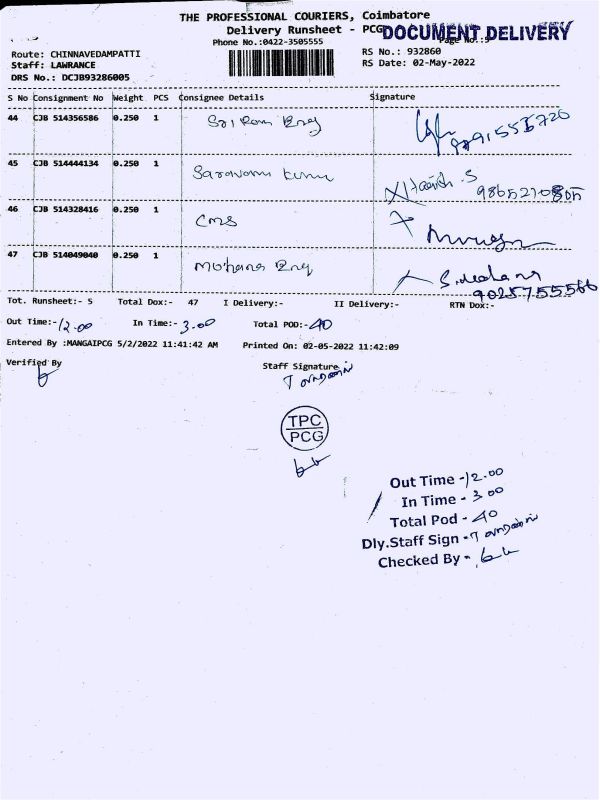 THE PROFESSIONAL COURIERS, Coimbatore
Delivery Runsheet - PCG
DOCUMENT DELIVERY
Phone No.:0422-3505555
Route: CHINNAVEDAMPATTI
RS No.: 932860
Staff: LAWRANCE
RS Date: 02-May-2022
DRS No.: DCJB93286005
S No Consignment No Weight PCS Consignee Details Signature
44 CJB 514356586 0.250 1 Sri Ram Eng
45 CJB 514444134 0.250 1 Saravana kumar Harish.S
9865210805
46 CJB 514328416 0.250 1 CMS Murugan
47 CJB 514049040 0.250 1 Mohana Eng S.Mohana
9025755566
Tot. Runsheet:- 5 Total Dox:- 47 I Delivery:- II Delivery:- RTN Dox:-
Out Time:-12.00 In Time:- 3.00 Total POD:-40
Entered By :MANGAIPCG 5/2/2022 11:41:42 AM Printed On: 02-05-2022 11:42:09
Verified By Staff Signature
TPC
PCG
Out Time -12.00
In Time - 3 00
Total Pod - 40
Dly.Staff Sign -
Checked By -